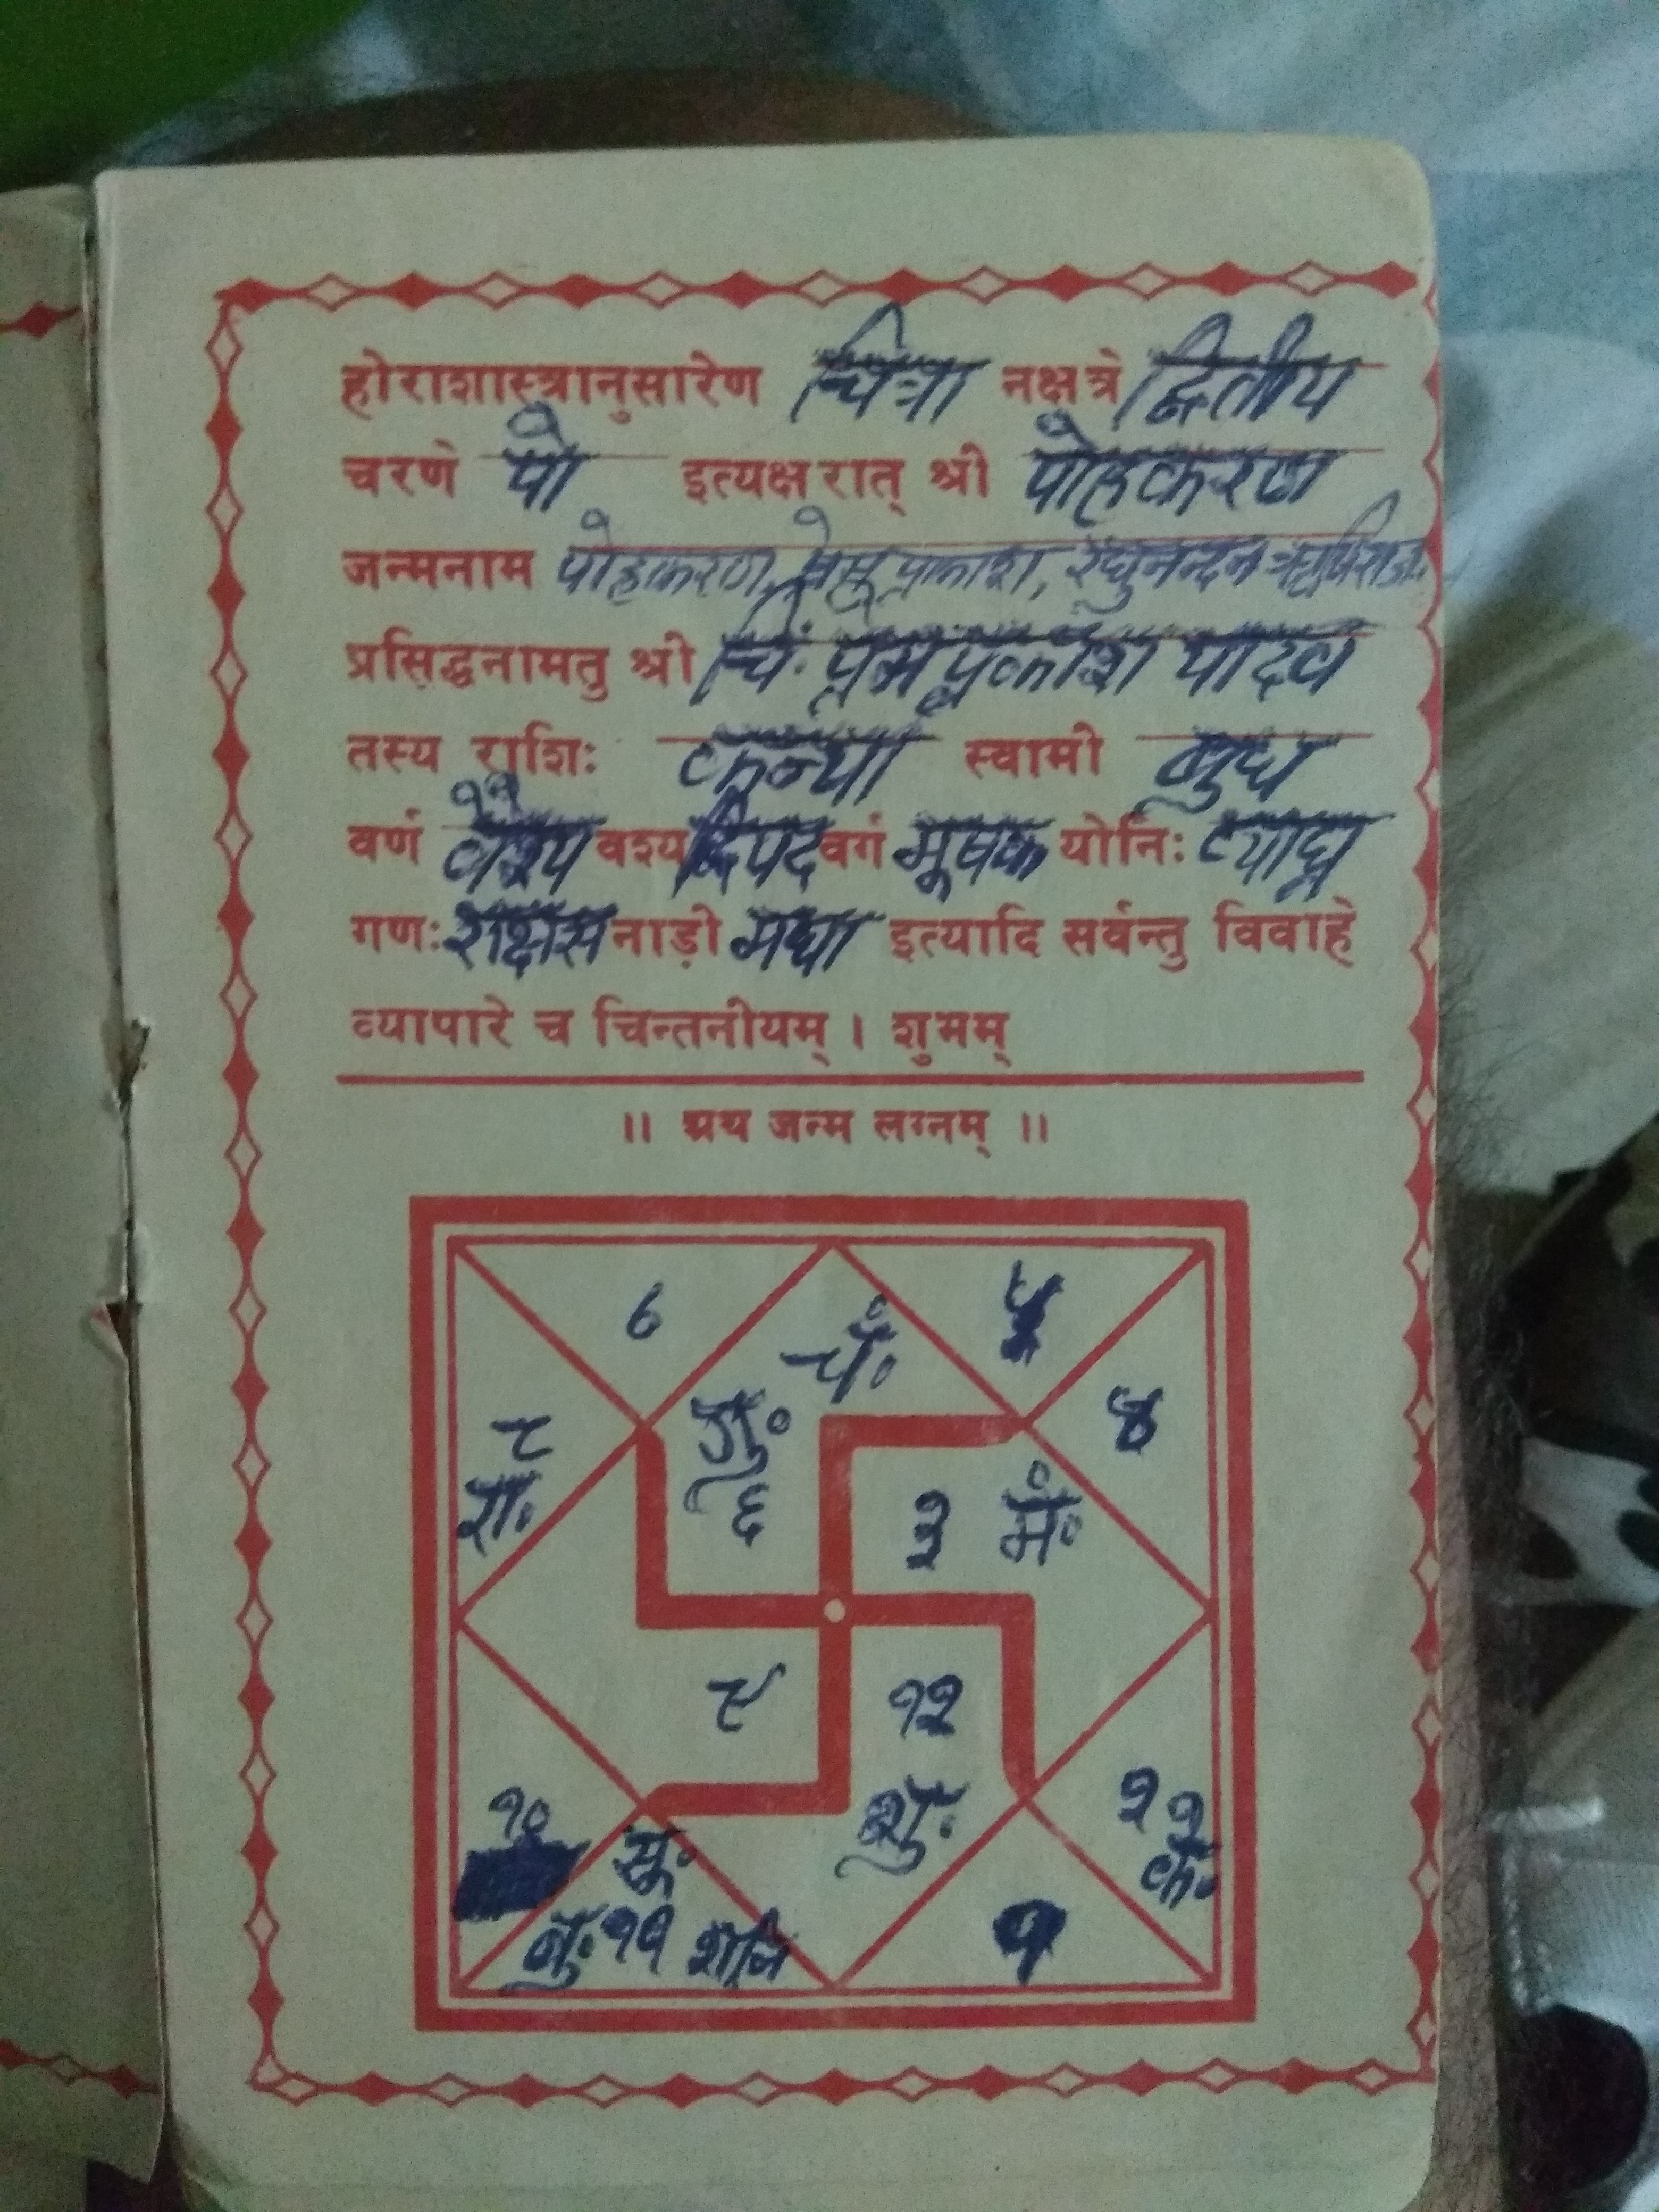 होराशास्त्रानुसारेण चित्रा नक्षत्रे द्वितीय
चरणे पो इत्यक्षरात् श्री पोहकरण
जन्मनाम पोहकरण, प्रेमप्रकाश, रघुनन्दन ऋषिराज
प्रसिद्धनामतु श्री चि. प्रेम प्रकाश यादव
तस्य राशिः कन्या स्वामी बुध
वर्ण वैश्य वश्य द्विपद वर्ग मूषक योनिः व्याघ्र
गणः राक्षस नाड़ी मध्या इत्यादि सर्वन्तु विवाहे
व्यापारे च चिन्तनीयम् । शुभम्
।। अथ जन्म लग्नम् ।।
७ चं॰ ५
गु॰ ६ ४
८ रा॰ ३ मं॰
९ १२ शु॰
१० २ के॰
सू॰ बु॰ ११ शनि १